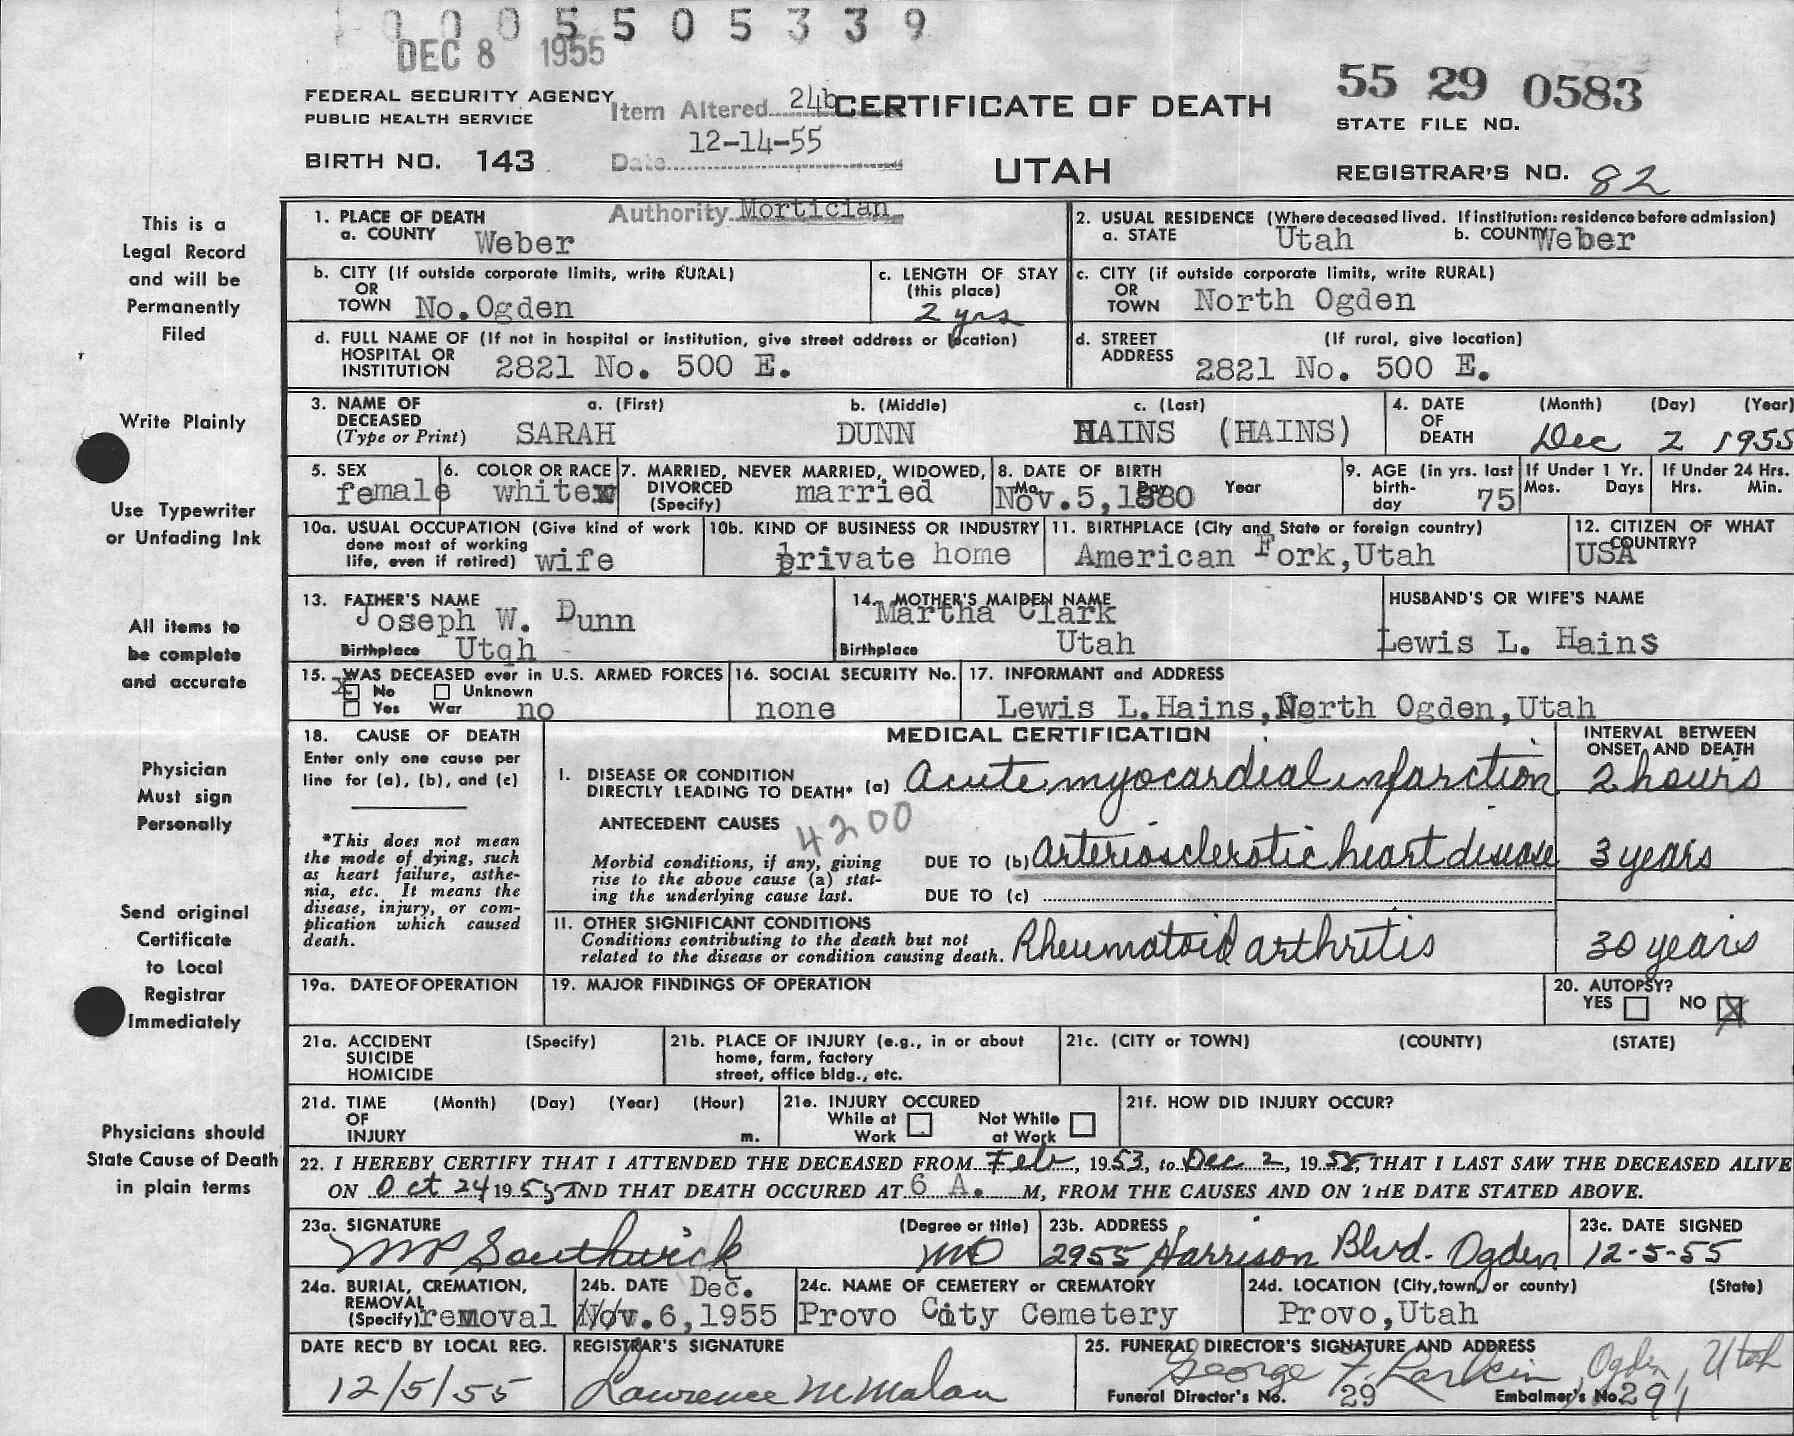 0005505339
DEC 8 1955
FEDERAL SECURITY AGENCY
PUBLIC HEALTH SERVICE
BIRTH NO. 143
Item Altered 24b
Date 12-14-55
Authority Mortician
CERTIFICATE OF DEATH
UTAH
55 29 0583
STATE FILE NO.
REGISTRAR'S NO. 82
This is a
Legal Record
and will be
Permanently
Filed
Write Plainly
Use Typewriter
or Unfading Ink
All items to
be complete
and accurate
Physician
Must sign
Personally
Send original
Certificate
to Local
Registrar
Immediately
Physicians should
State Cause of Death
in plain terms
1. PLACE OF DEATH
a. COUNTY Weber
2. USUAL RESIDENCE (Where deceased lived. If institution: residence before admission)
a. STATE Utah b. COUNTY Weber
b. CITY (If outside corporate limits, write RURAL)
OR
TOWN No. Ogden
c. LENGTH OF STAY
(this place)
2 yrs
c. CITY (if outside corporate limits, write RURAL)
OR
TOWN North Ogden
d. FULL NAME OF (If not in hospital or institution, give street address or location)
HOSPITAL OR
INSTITUTION 2821 No. 500 E.
d. STREET (If rural, give location)
ADDRESS 2821 No. 500 E.
3. NAME OF DECEASED (Type or Print)
a. (First) b. (Middle) c. (Last)
SARAH DUNN HAINS (HAINS)
4. DATE OF DEATH (Month) (Day) (Year)
Dec 2 1955
5. SEX
female
6. COLOR OR RACE
white
7. MARRIED, NEVER MARRIED, WIDOWED,
DIVORCED (Specify) married
8. DATE OF BIRTH
Mo. Day Year
Nov. 5, 1880
9. AGE (in yrs. last
birth-
day 75
If Under 1 Yr.
Mos. Days
If Under 24 Hrs.
Hrs. Min.
10a. USUAL OCCUPATION (Give kind of work
done most of working
life, even if retired) wife
10b. KIND OF BUSINESS OR INDUSTRY
private home
11. BIRTHPLACE (City and State or foreign country)
American Fork, Utah
12. CITIZEN OF WHAT
COUNTRY?
USA
13. FATHER'S NAME
Joseph W. Dunn
Birthplace Utah
14. MOTHER'S MAIDEN NAME
Martha Clark
Birthplace Utah
HUSBAND'S OR WIFE'S NAME
Lewis L. Hains
15. WAS DECEASED ever in U.S. ARMED FORCES
No Unknown
Yes War no
16. SOCIAL SECURITY No.
none
17. INFORMANT and ADDRESS
Lewis L. Hains, North Ogden, Utah
18. CAUSE OF DEATH
Enter only one cause per
line for (a), (b), and (c)
*This does not mean
the mode of dying, such
as heart failure, asthe-
nia, etc. It means the
disease, injury, or com-
plication which caused
death.
MEDICAL CERTIFICATION
INTERVAL BETWEEN
ONSET AND DEATH
I. DISEASE OR CONDITION
DIRECTLY LEADING TO DEATH* (a) Acute myocardial infarction 2 hours
ANTECEDENT CAUSES 4200
Morbid conditions, if any, giving
rise to the above cause (a) stat-
ing the underlying cause last.
DUE TO (b) Arteriosclerotic heart disease 3 years
DUE TO (c)
11. OTHER SIGNIFICANT CONDITIONS
Conditions contributing to the death but not
related to the disease or condition causing death. Rheumatoid arthritis 30 years
19a. DATE OF OPERATION
19. MAJOR FINDINGS OF OPERATION
20. AUTOPSY?
YES NO X
21a. ACCIDENT (Specify)
SUICIDE
HOMICIDE
21b. PLACE OF INJURY (e.g., in or about
home, farm, factory
street, office bldg., etc.
21c. (CITY or TOWN) (COUNTY) (STATE)
21d. TIME (Month) (Day) (Year) (Hour)
OF
INJURY m.
21e. INJURY OCCURED
While at Work Not While at Work
21f. HOW DID INJURY OCCUR?
22. I HEREBY CERTIFY THAT I ATTENDED THE DECEASED FROM Feb, 1953, to Dec 2, 1955, THAT I LAST SAW THE DECEASED ALIVE
ON Oct 24 1955 AND THAT DEATH OCCURED AT 6 A. M, FROM THE CAUSES AND ON THE DATE STATED ABOVE.
23a. SIGNATURE (Degree or title)
Southwick MD
23b. ADDRESS
2955 Harrison Blvd. Ogden
23c. DATE SIGNED
12-5-55
24a. BURIAL, CREMATION,
REMOVAL
(Specify) removal
24b. DATE Dec.
Nov. 6, 1955
24c. NAME OF CEMETERY or CREMATORY
Provo City Cemetery
24d. LOCATION (City, town, or county) (State)
Provo, Utah
DATE REC'D BY LOCAL REG.
12/5/55
REGISTRAR'S SIGNATURE
Lawrence M Malan
25. FUNERAL DIRECTOR'S SIGNATURE AND ADDRESS
George F. Larkin, Ogden, Utah
Funeral Director's No. 29 Embalmer's No. 291